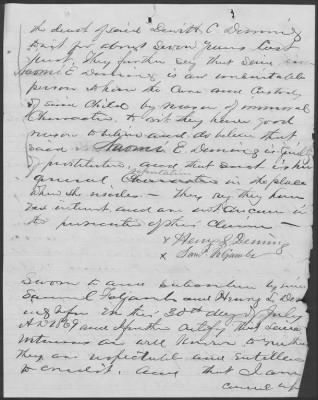 the death of said Dewitt C. Deming
that for about Seven years last
past, They further say that Said
Naomi E Deming is an unsuitable
person to have the Care and Custody
of said Child by reason of immoral
Character, to wit they have good
reason to believe and do believe that
said Naomi E. Deming is guilty
of prostitution, and that such is her
general Character reputation in the place
where she resides — They say they have
no interest and are not concerned in
the prosecution of this Claim —
x Henry S. Deming
x Saml
Sworn to and Subscribed by
Samuel and Henry S. Dem
ing before me this 30th day of July
AD 1869 and I further Certify that Said
Witnesses are well known to me that
they are respectable and entitled
to credit, and that I am